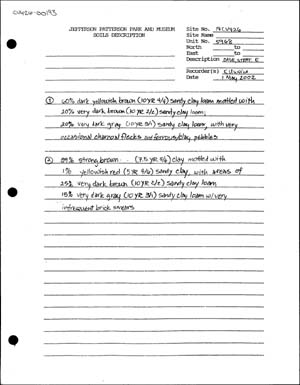 JEFFERSON PATTERSON PARK AND MUSEUM
SOILS DESCRIPTION
Site No.
Site Name
Unit No.
North to
East to
Description
Recorder(s)
1 May 2002
① 60% dark yellowish brown (10 YR 4/6) sandy clay loam mottled with
20% very dark brown (10 YR 2/2) sandy clay loam,
20% very dark gray (10 YR 3/1) sandy clay loam, with very
occasional charcoal flecks and ferrous/clay pebbles
② 59% strong brown (7.5 YR 5/6) clay mottled with
1% yellowish red (5 YR 5/6) sandy clay, with areas of
25% very dark brown (10 YR 2/2) sandy clay loam
15% very dark gray (10 YR 3/1) sandy clay loam w/very
infrequent brick smears